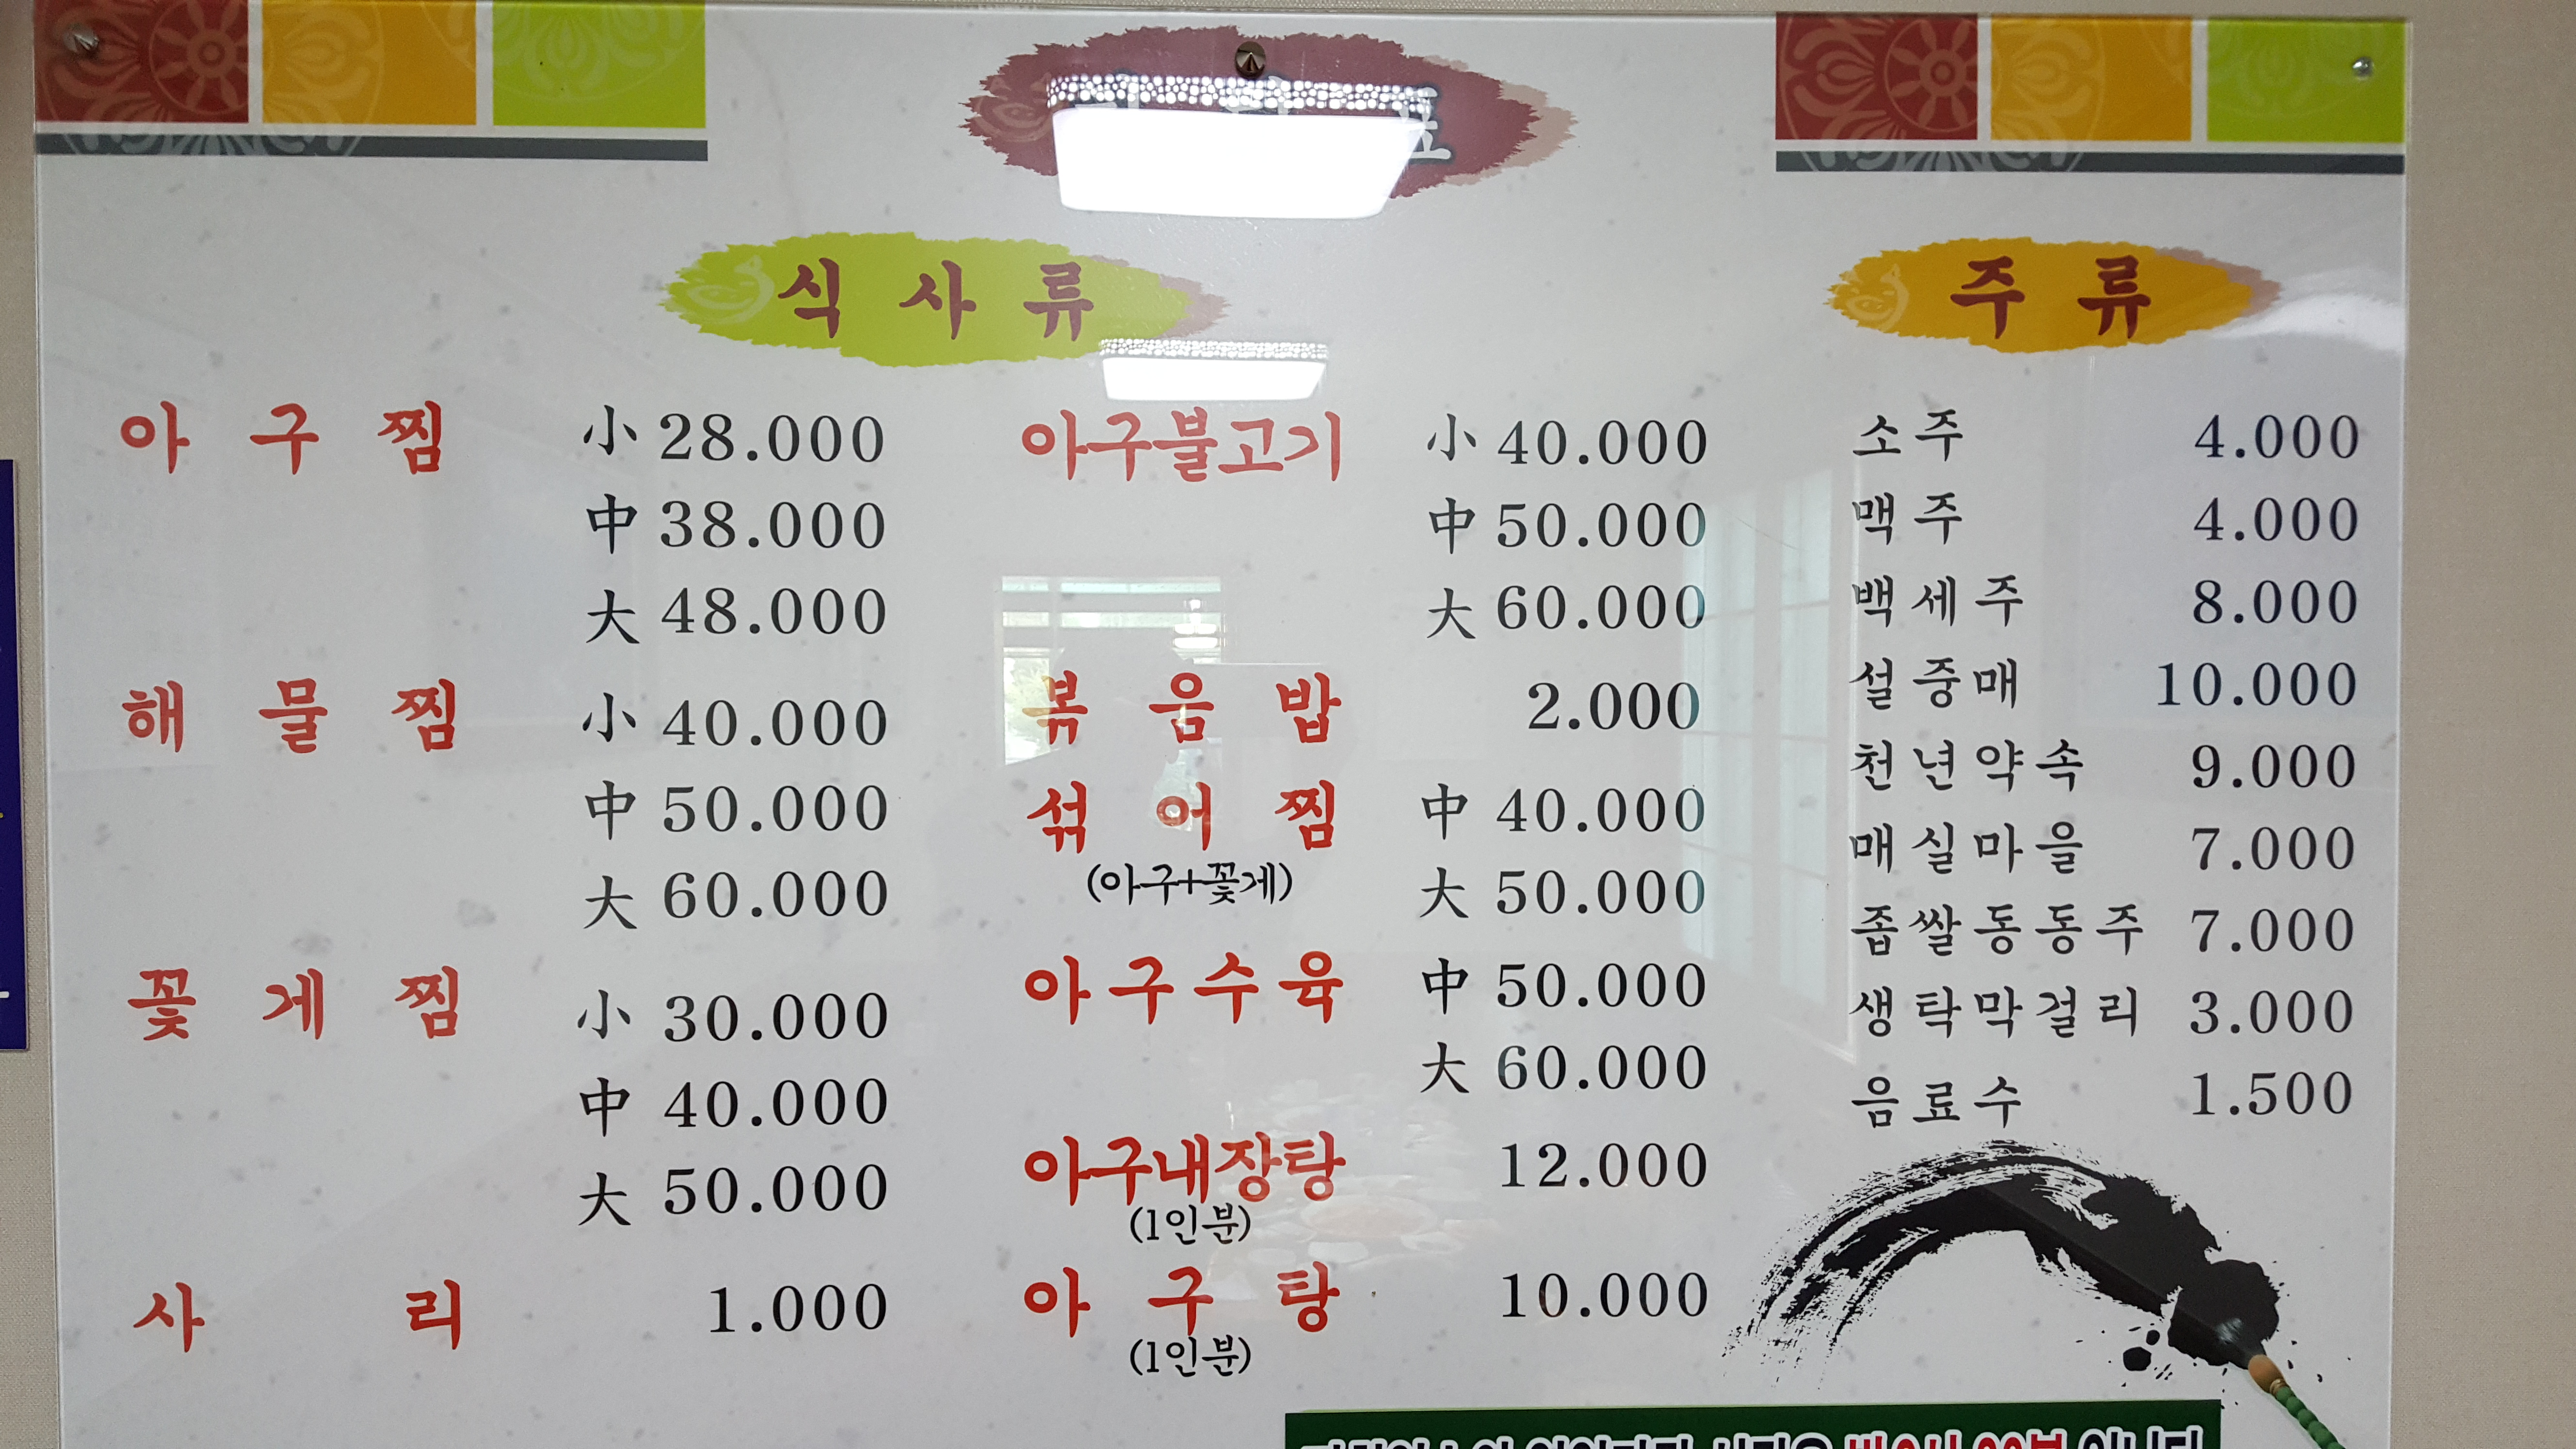 표
식사류
아구찜 小 28.000
中 38.000
大 48.000
해물찜 小 40.000
中 50.000
大 60.000
꽃게찜 小 30.000
中 40.000
大 50.000
사리 1.000
아구불고기 小 40.000
中 50.000
大 60.000
볶음밥 2.000
섞어찜 中 40.000
(아구+꽃게) 大 50.000
아구수육 中 50.000
大 60.000
아구내장탕 12.000
(1인분)
아구탕 10.000
(1인분)
주류
소주 4.000
맥주 4.000
백세주 8.000
설중매 10.000
천년약속 9.000
매실마을 7.000
좁쌀동동주 7.000
생탁막걸리 3.000
음료수 1.500